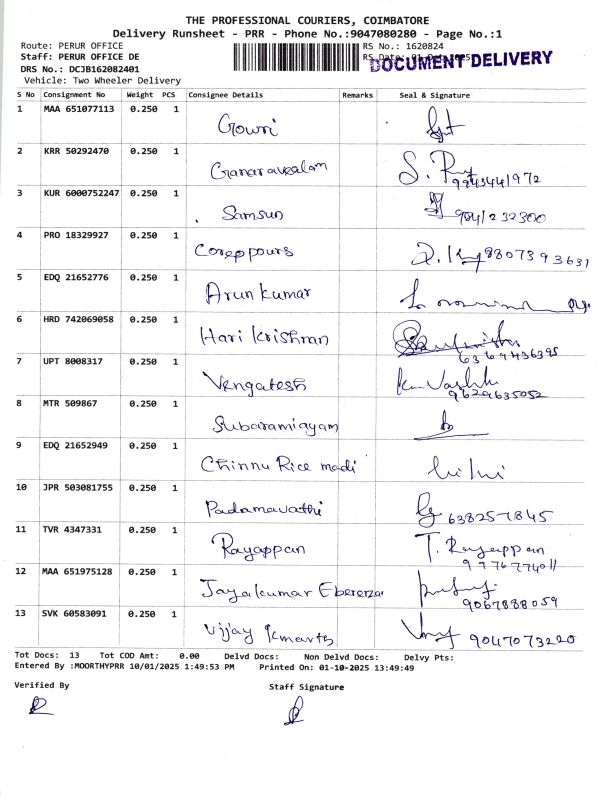 THE PROFESSIONAL COURIERS, COIMBATORE
Delivery Runsheet - PRR - Phone No.:9047080280 - Page No.:1
Route: PERUR OFFICE
RS No.: 1620824
Staff: PERUR OFFICE DE
RS Date: 01-Oct-2025
DOCUMENT DELIVERY
DRS No.: DCJB162082401
Vehicle: Two Wheeler Delivery
S No Consignment No Weight PCS Consignee Details Remarks Seal & Signature
1 MAA 651077113 0.250 1 Gowri
2 KRR 50292470 0.250 1 Gananavealam S.
3 KUR 6000752247 0.250 1 Samsun 9041232300
4 PRO 18329927 0.250 1 Coreppours 8807393631
5 EDQ 21652776 0.250 1 Arun kumar
6 HRD 742069058 0.250 1 Hari krishnan 6369436395
7 UPT 8008317 0.250 1 Vengatesh 9629635052
8 MTR 509867 0.250 1 Subaramiayam
9 EDQ 21652949 0.250 1 Chinnu Rice modi
10 JPR 503081755 0.250 1 Padamavathi 638257845
11 TVR 4347331 0.250 1 Rayappan T. Rayappan
9776774011
12 MAA 651975128 0.250 1 Jayakumar 9067888059
13 SVK 60583091 0.250 1 Vijjay 9047073220
Tot Docs: 13 Tot COD Amt: 0.00 Delvd Docs: Non Delvd Docs: Delvy Pts:
Entered By :MOORTHYPRR 10/01/2025 1:49:53 PM Printed On: 01-10-2025 13:49:49
Verified By Staff Signature